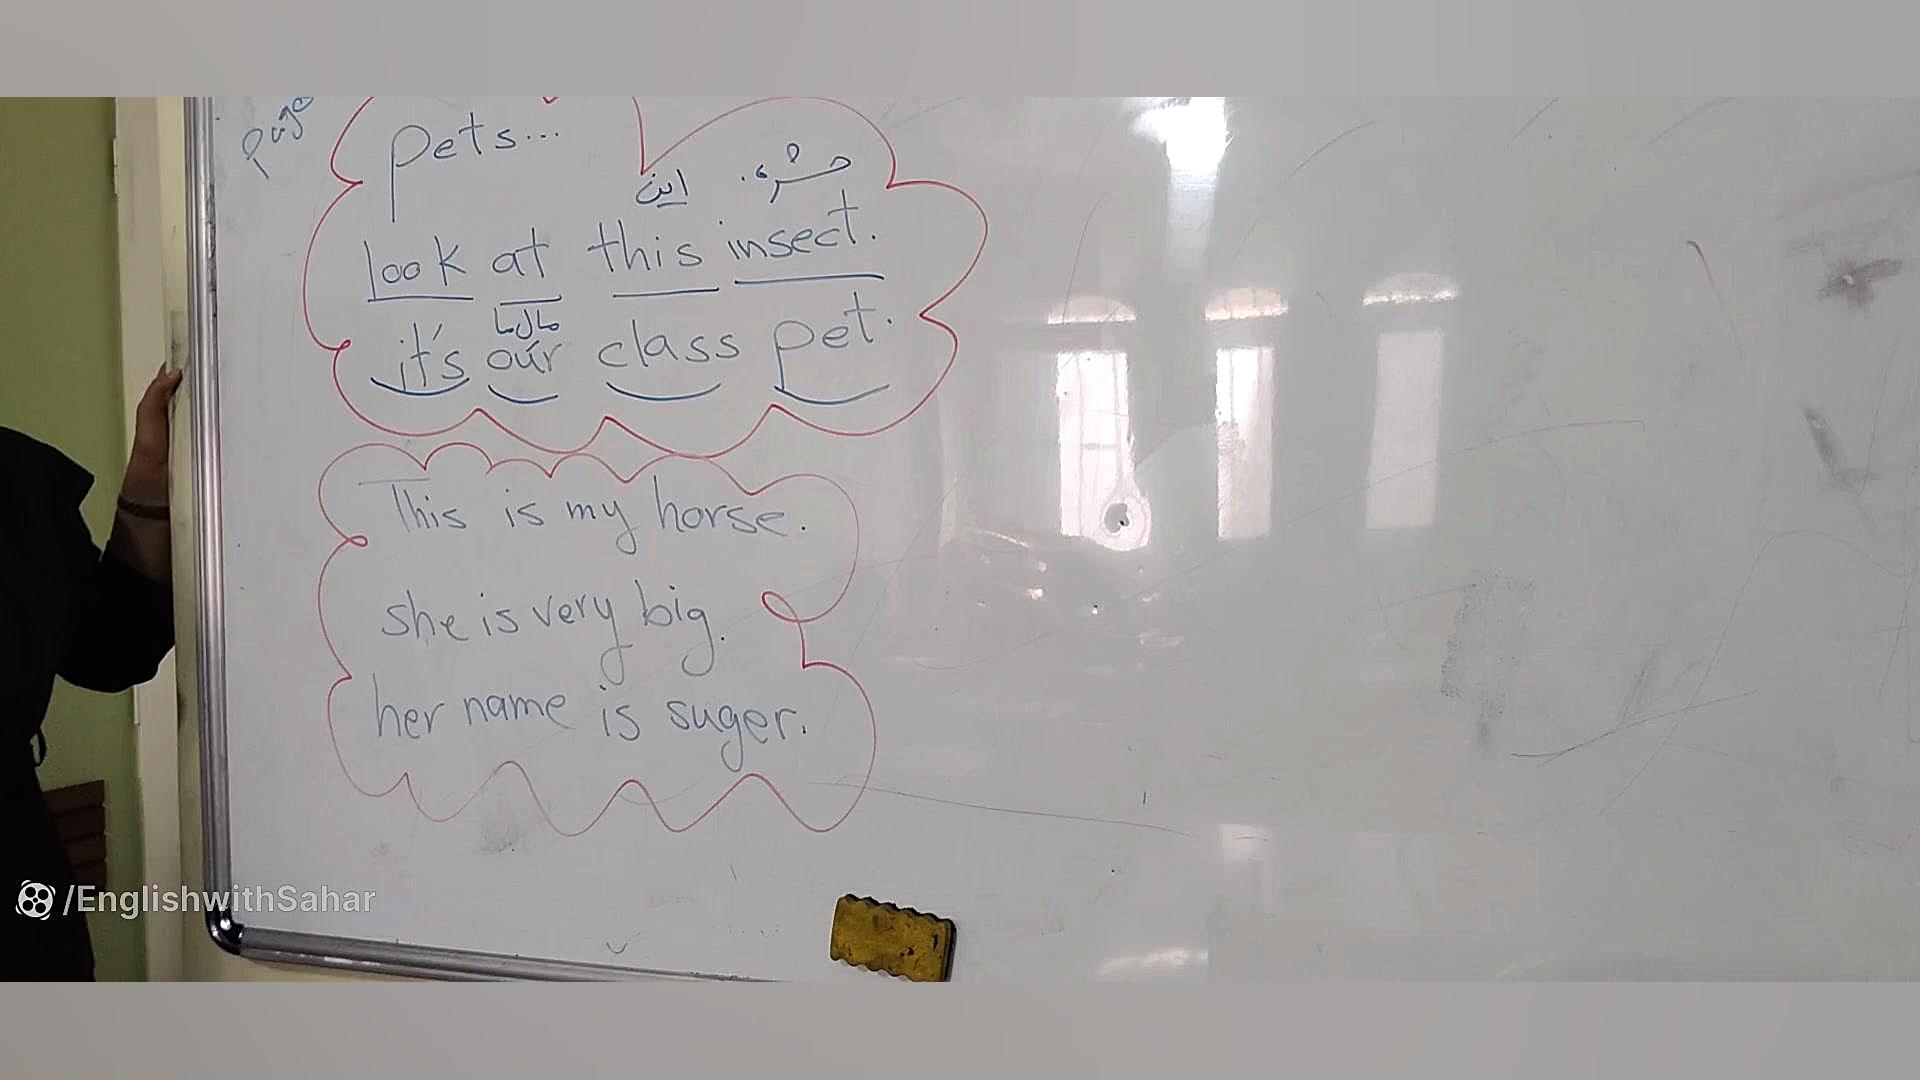 page
pets...
این حشره.
look at this insect.
مال ما
it's our class pet.
This is my horse.
she is very big.
her name is suger.
/EnglishwithSahar